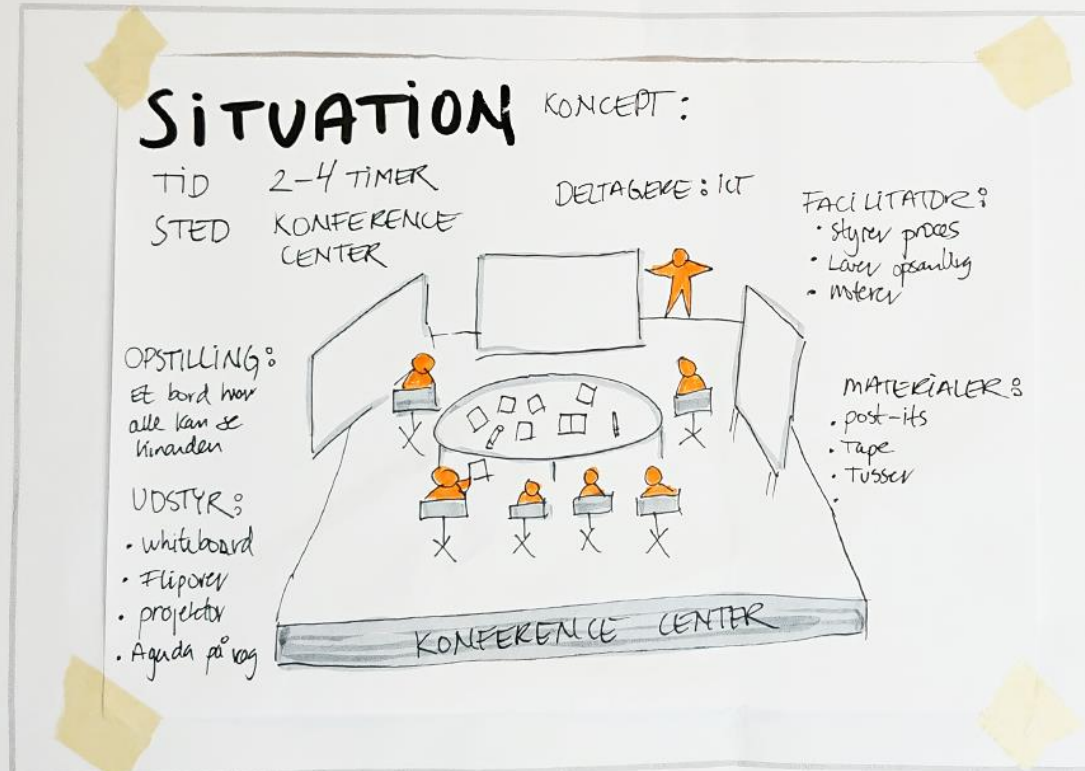 SITUATION KONCEPT:
TID 2-4 TIMER
STED KONFERENCE
CENTER
DELTAGERE: ICT
FACILITATOR:
• styrer proces
• Laver opsamling
• noterer
OPSTILLING:
Et bord hvor
alle kan se
hinanden
UDSTYR:
• whiteboard
• Flipover
• projektor
• Agenda på væg
MATERIALER:
• post-its
• Tape
• Tusser
•
KONFERENCE CENTER